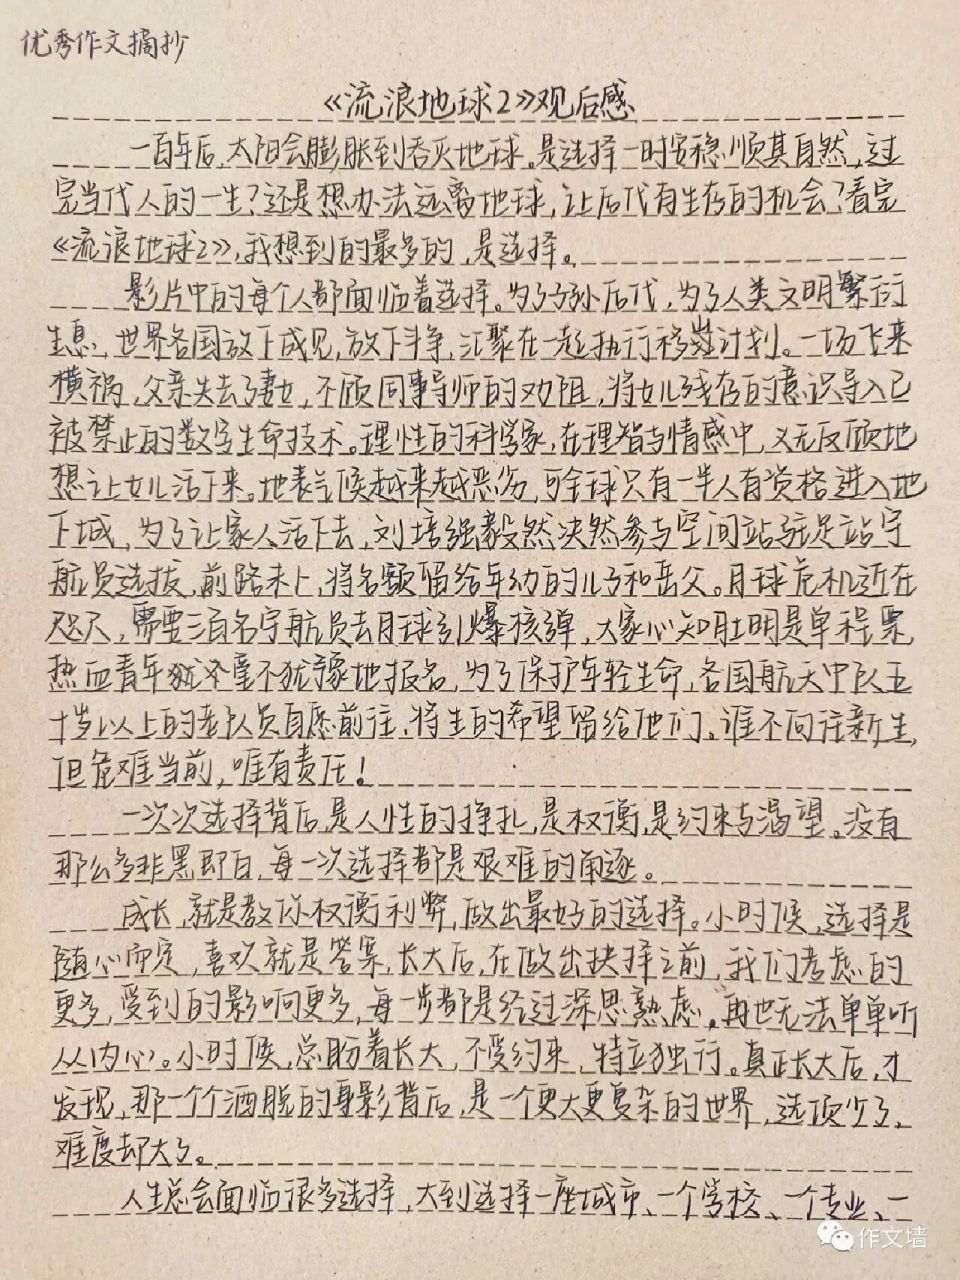 优秀作文摘抄
《流浪地球2》观后感
一百年后,太阳会膨胀到吞灭地球。是选择一时安稳,顺其自然,过
完当代人的一生?还是想办法远离地球,让后代有生存的机会?看完
《流浪地球2》,我想到的最多的,是选择。
影片中的每个人都面临着选择。为了子孙后代,为了人类文明繁衍
生息,世界各国放下成见,放下斗争,汇聚在一起执行移山计划。一场飞来
横祸,父亲失去了妻女,不顾同事导师的劝阻,将女儿残存的意识导入已
被禁止的数字生命技术。理性的科学家,在理智与情感中,义无反顾地
想让女儿活下来。地表气候越来越恶劣,可全球只有一半人有资格进入地
下城,为了让家人活下去,刘培强毅然决然参与空间站驻足站宇
航员选拔,前路未卜,将名额留给年幼的儿子和岳父。月球危机近在
咫尺,需要三百名宇航员去月球引爆核弹,大家心知肚明是单程票,
热血青年犹还毫不犹豫地报名,为了保护年轻生命,各国航天中队五
十岁以上的老队员自愿前往,将生的希望留给他们。谁不向往新生,
但危难当前,唯有责任!
一次次选择背后,是人性的挣扎,是权衡,是约束与渴望。没有
那么多非黑即白,每一次选择都是艰难的角逐。
成长,就是教你权衡利弊,做出最好的选择。小时候,选择是
随心而定,喜欢就是答案,长大后,在做出抉择之前,我们考虑的
更多,受到的影响更多,每一步都是经过深思熟虑。再也无法单单听
从内心。小时候,总盼着长大,不受约束,特立独行。真正长大后,才
发现,那一个个洒脱的身影背后,是一个更大更复杂的世界,选项少了、
难度却大了。
人生总会面临很多选择,大到选择一座城市、一个学校、一个专业、一
作文墙